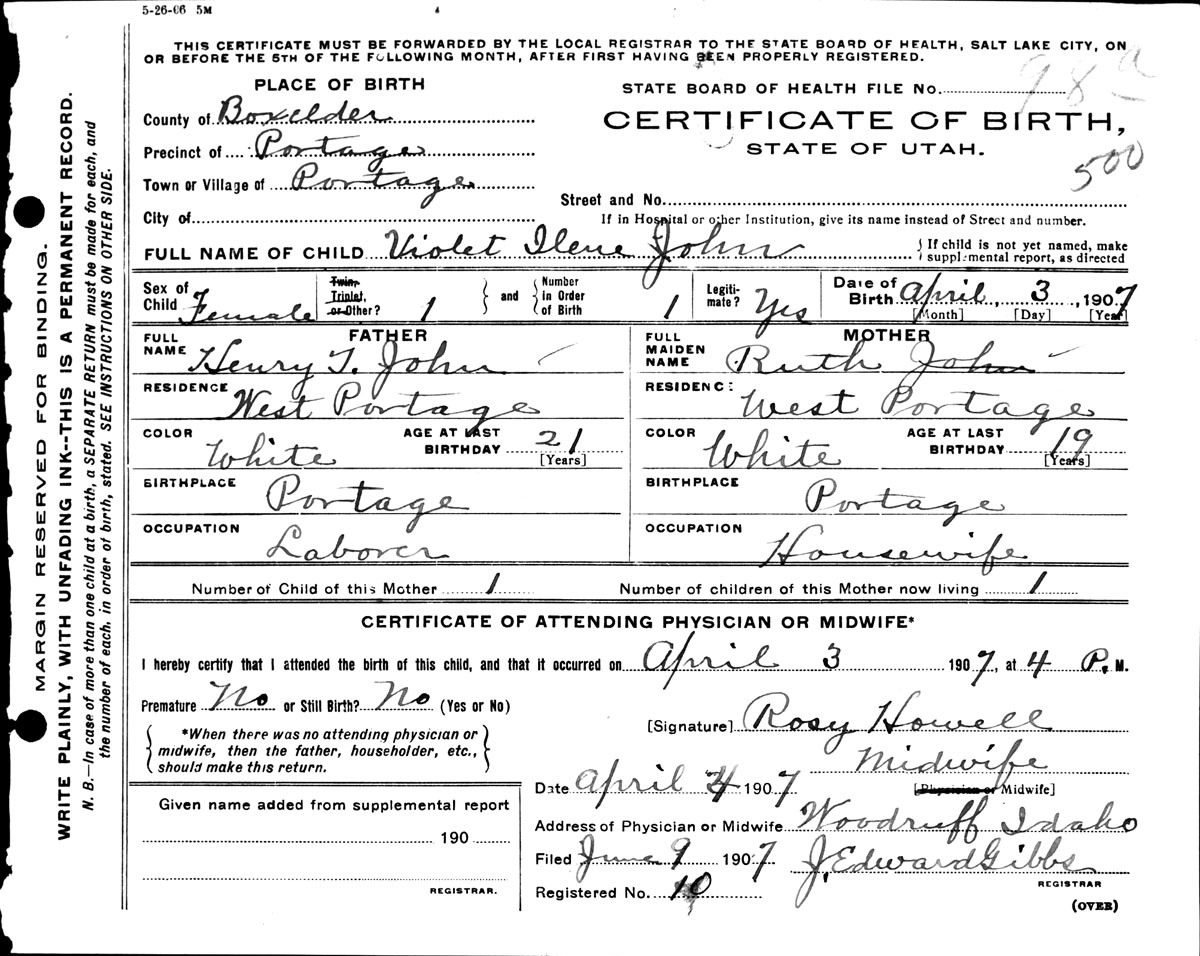 5-26-06 5M
THIS CERTIFICATE MUST BE FORWARDED BY THE LOCAL REGISTRAR TO THE STATE BOARD OF HEALTH, SALT LAKE CITY, ON
OR BEFORE THE 5TH OF THE FOLLOWING MONTH, AFTER FIRST HAVING BEEN PROPERLY REGISTERED.
PLACE OF BIRTH
STATE BOARD OF HEALTH FILE No. 98 a
County of Boxelder
CERTIFICATE OF BIRTH,
Precinct of Portage
STATE OF UTAH.
500
Town or Village of Portage
Street and No.
City of
If in Hospital or other Institution, give its name instead of Street and number.
FULL NAME OF CHILD Violet Ilene John
If child is not yet named, make
supplemental report, as directed
Sex of Child Female
Twin, Triplet, or Other? 1
and
Number in Order of Birth 1
Legiti-mate? Yes
Date of Birth April 3, 1907
[Month] [Day] [Year]
FATHER
FULL NAME Henry T. John
RESIDENCE West Portage
COLOR White
AGE AT LAST BIRTHDAY 21
[Years]
BIRTHPLACE Portage
OCCUPATION Laborer
MOTHER
FULL MAIDEN NAME Ruth John
RESIDENCE: West Portage
COLOR White
AGE AT LAST BIRTHDAY 19
[Years]
BIRTHPLACE Portage
OCCUPATION Housewife
Number of Child of this Mother 1
Number of children of this Mother now living 1
CERTIFICATE OF ATTENDING PHYSICIAN OR MIDWIFE*
I hereby certify that I attended the birth of this child, and that it occurred on April 3 1907, at 4 P. M.
Premature No or Still Birth? No (Yes or No)
[Signature] Rosy Howell
*When there was no attending physician or
midwife, then the father, householder, etc.,
should make this return.
Midwife
[Physician or Midwife]
Date April 4 1907
Given name added from supplemental report
190
REGISTRAR.
Address of Physician or Midwife Woodruff Idaho
Filed June 9 1907 J. Edward Gibbs
REGISTRAR
Registered No. 10
(OVER)
MARGIN RESERVED FOR BINDING.
WRITE PLAINLY, WITH UNFADING INK--THIS IS A PERMANENT RECORD.
N. B.—In case of more than one child at a birth, a SEPARATE RETURN must be made for each, and
the number of each, in order of birth, stated. SEE INSTRUCTIONS ON OTHER SIDE.